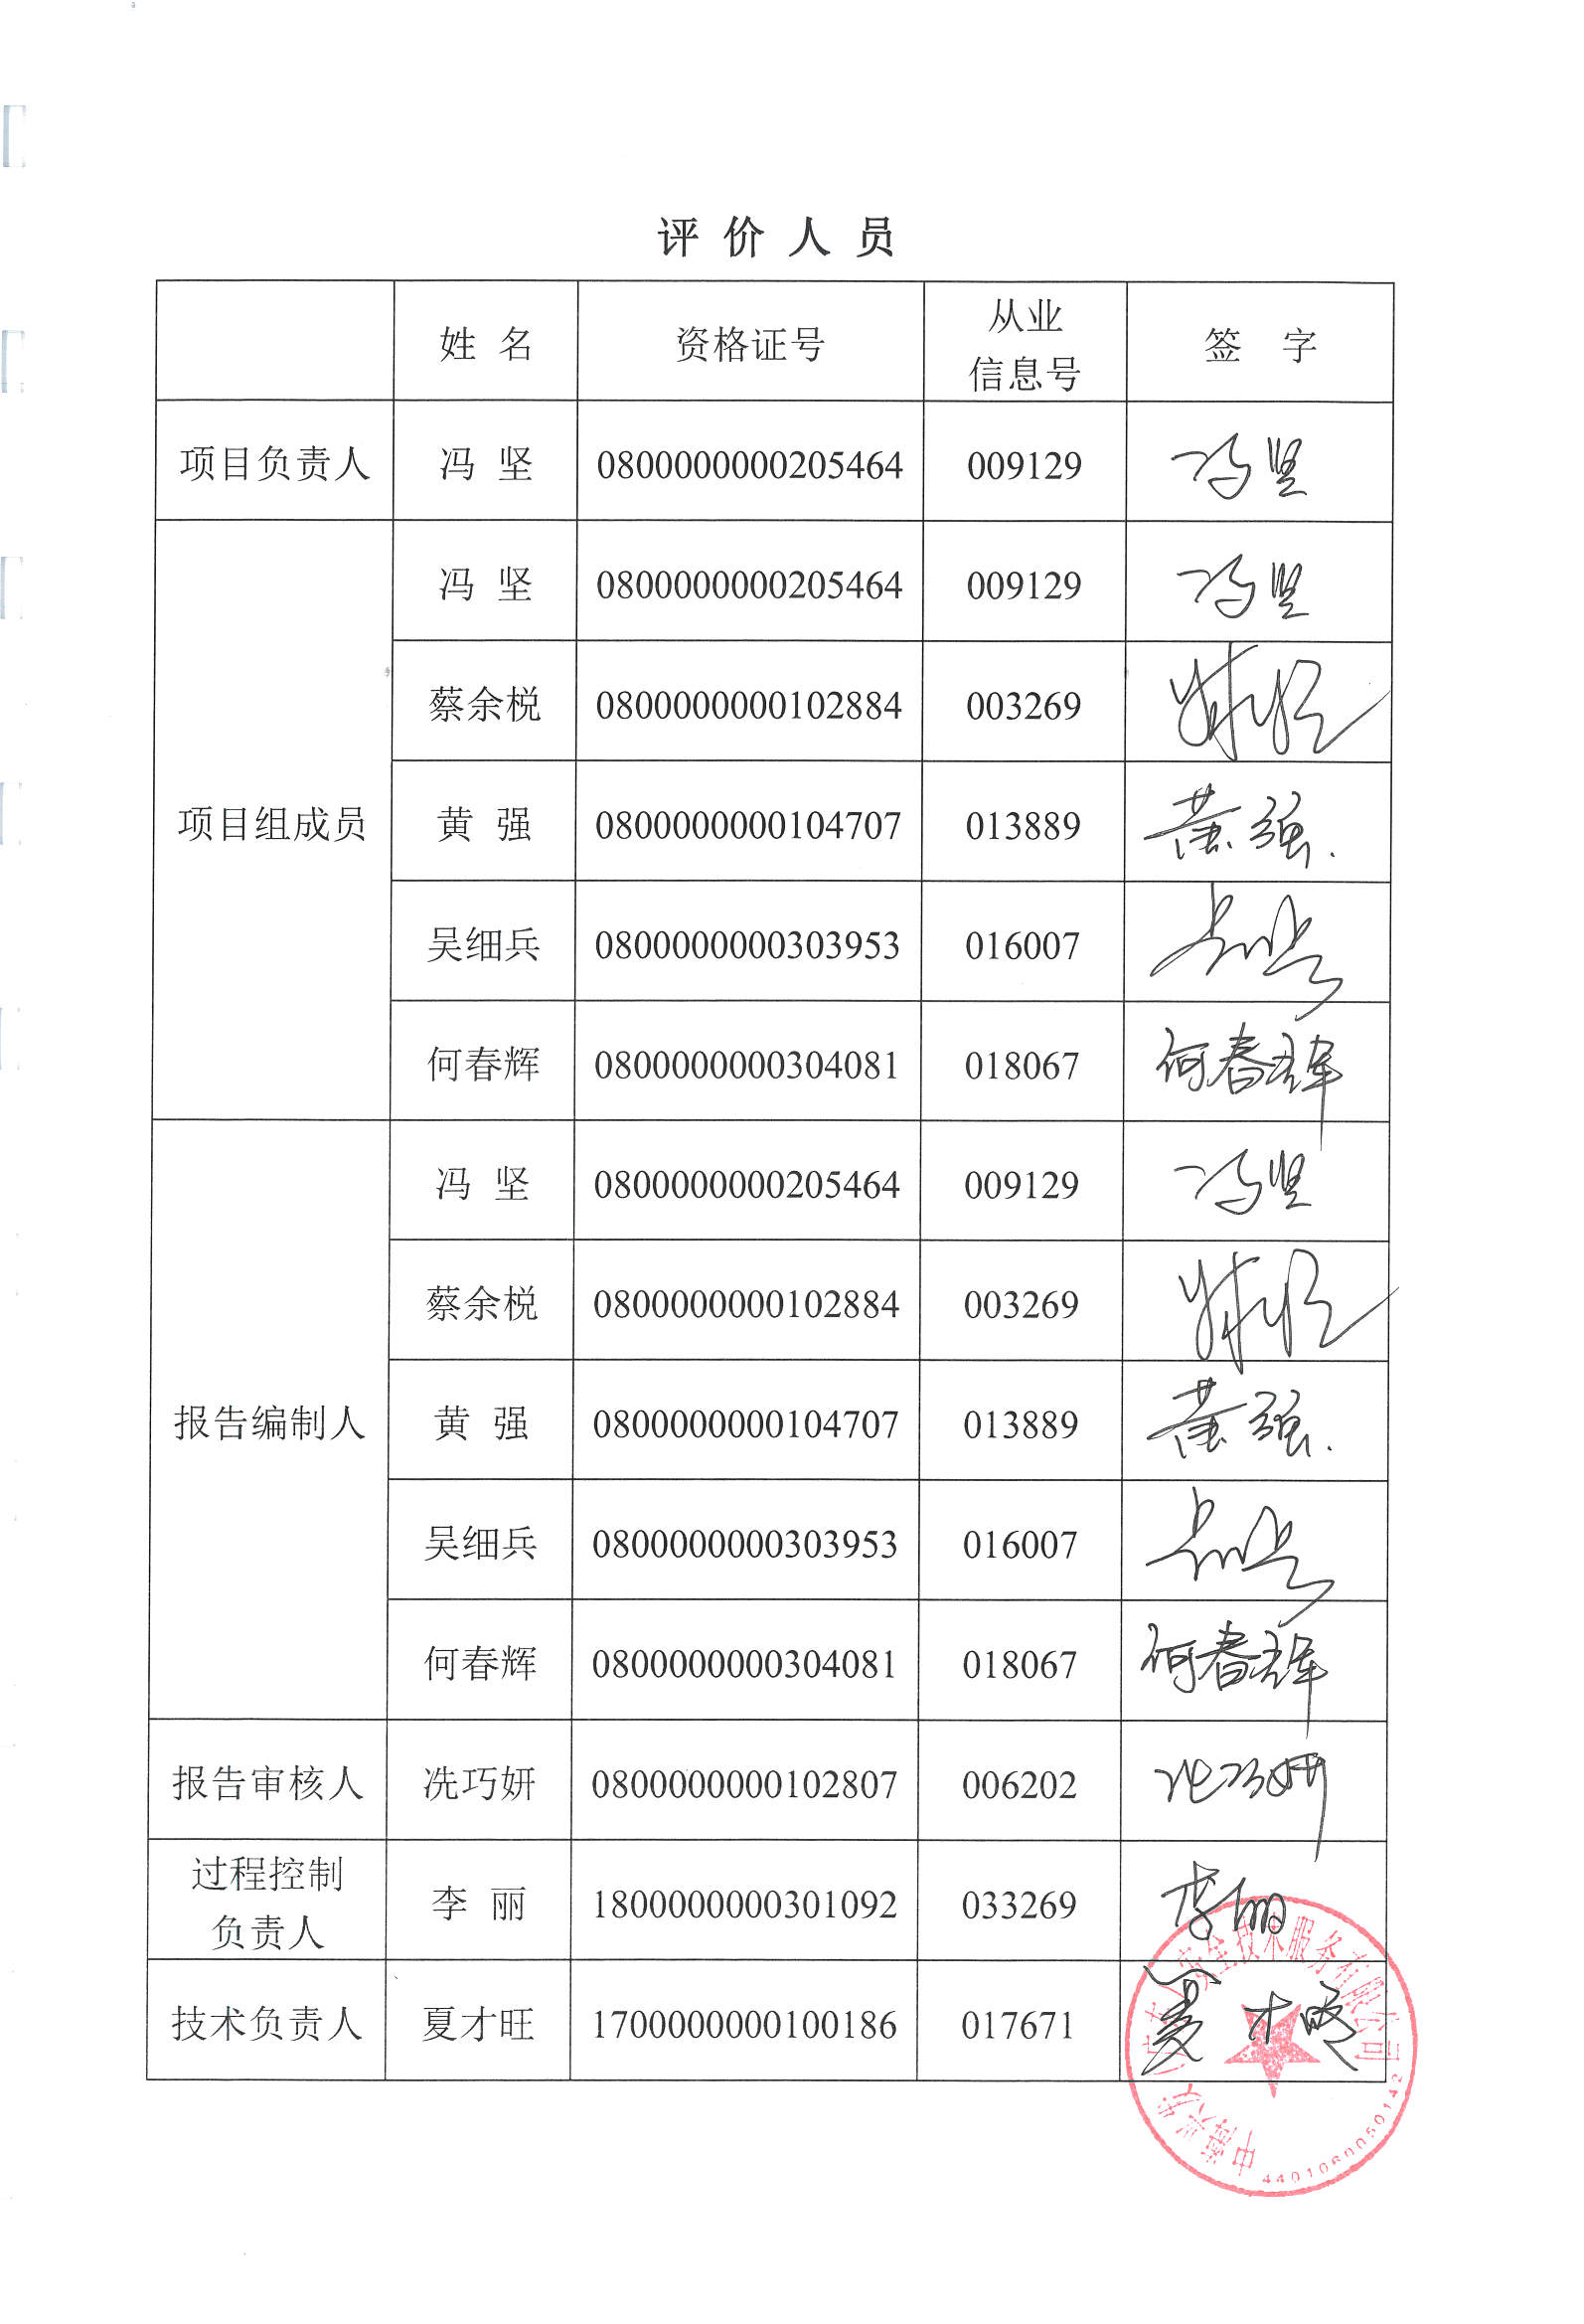 评价人员
姓名 资格证号 从业信息号 签字
项目负责人 冯坚 0800000000205464 009129 冯坚
项目组成员 冯坚 0800000000205464 009129 冯坚
蔡余棁 0800000000102884 003269
黄强 0800000000104707 013889 黄强
吴细兵 0800000000303953 016007
何春辉 0800000000304081 018067 何春辉
报告编制人 冯坚 0800000000205464 009129 冯坚
蔡余棁 0800000000102884 003269
黄强 0800000000104707 013889 黄强
吴细兵 0800000000303953 016007
何春辉 0800000000304081 018067 何春辉
报告审核人 冼巧妍 0800000000102807 006202 冼巧妍
过程控制负责人 李丽 1800000000301092 033269 李丽
技术负责人 夏才旺 1700000000100186 017671 夏才旺
安全技术服务有限公司
4401060050142